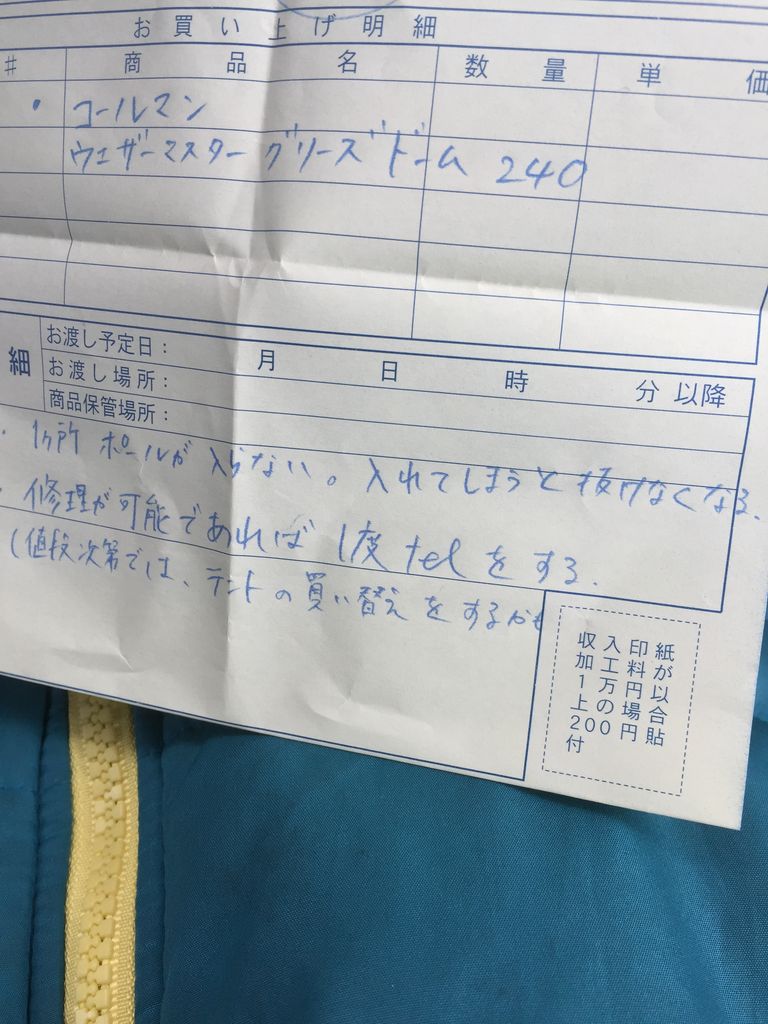 お買い上げ明細
# 商品名 数量 単価
・コールマン
ウェザーマスター ブリーズドーム 240
細
お渡し予定日： 月 日 時 分 以降
お渡し場所：
商品保管場所：
・1ヶ所 ポールが入らない。入れてしまうと抜けなくなる。
・修理が可能であれば 1度telをする。
(値段次第では、テントの買い替えをするかも
収入印紙
加工料が
1万円以
上の場合
200円貼
付